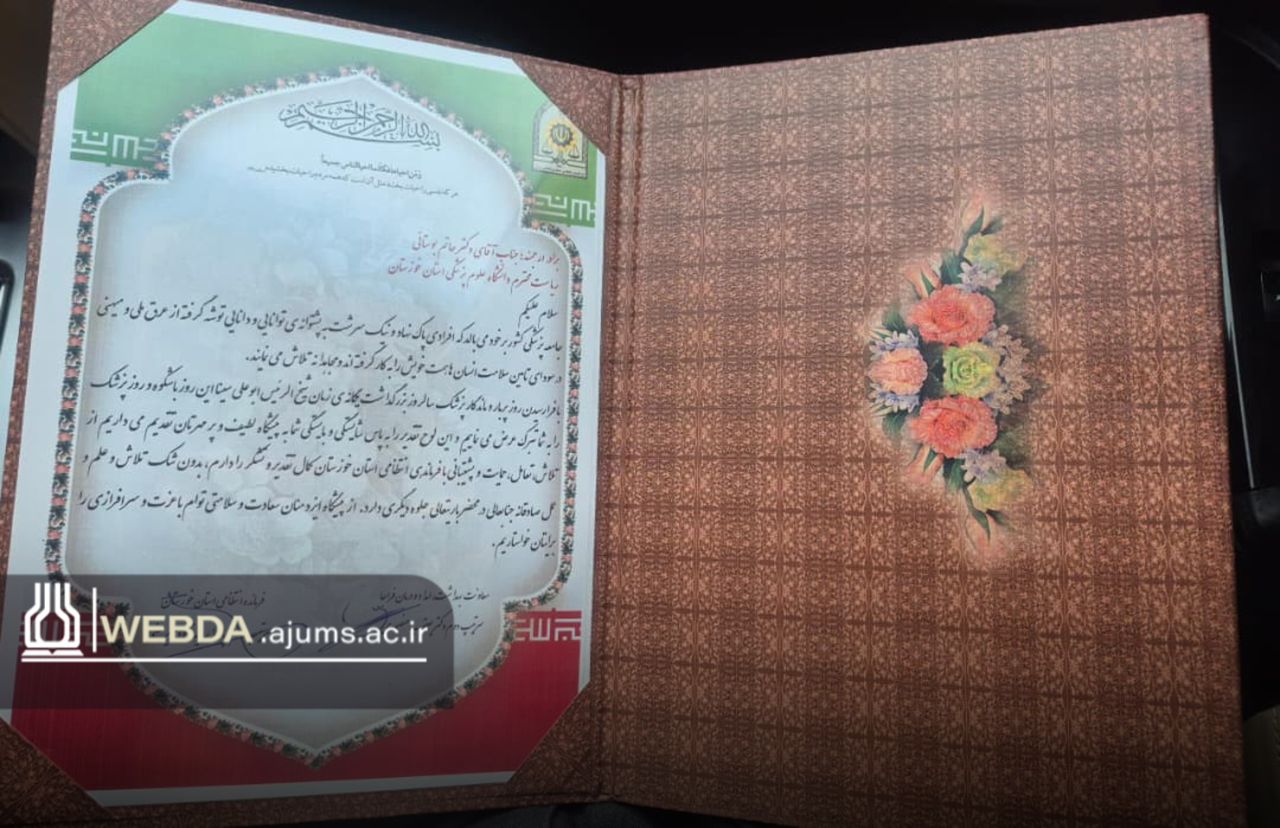 بسم الله الرحمن الرحیم
و من احیاها فکانما احیا الناس جمیعا
هر کس نفسی را حیات بخشد مثل آن است که همه مردم را حیات بخشیده
برادر ارجمند؛ جناب آقای دکتر حاتم بوستانی
ریاست محترم دانشگاه علوم پزشکی استان خوزستان
سلام علیکم
جامعه پزشکی کشور بر خود می بالد که افرادی پاک نهاد و نیک سرشت به پشتوانه ی توانایی و دانایی توشه گرفته از عرق ملی و میهنی
در سودای تامین سلامت انسان ها همت خویش را به کار گرفته اند و مجاهدانه تلاش می نمایند.
با فرا رسیدن روز پربار و ماندگار پزشک سالروز بزرگداشت یگانه ی زمان شیخ الرئیس ابوعلی سینا این روز باشکوه و روز پزشک
را به شما تبرک عرض می نماییم و این لوح تقدیر را به پاس شایستگی و بایستگی شما به پیشگاه لطیف و پر مهرتان تقدیم می داریم از
تلاش، تعامل، حمایت و پشتیبانی با فرماندهی انتظامی استان خوزستان کمال تقدیر و تشکر را دارم، بدون شک تلاش و علم و
عمل صادقانه جنابعالی در محضر باریتعالی جلوه دیگری دارد. از پیشگاه ایزد منان سعادت و سلامتی توام با عزت و سرافرازی را
برایتان خواستاریم.
معاونت بهداشت، امداد و درمان فراجا
فرمانده انتظامی استان خوزستان
سرتیپ دوم دکتر
WEBDA.ajums.ac.ir